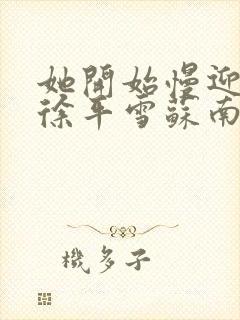 她開始慢迎
徐平雪蘇南
機多子